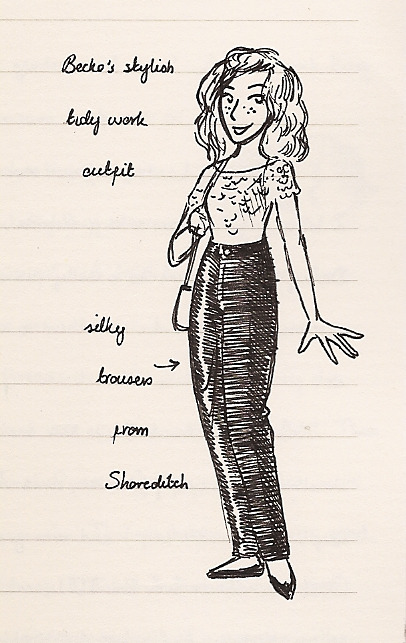 Becko's stylish
tidy work
outfit
silky
trousers
from
Shoreditch